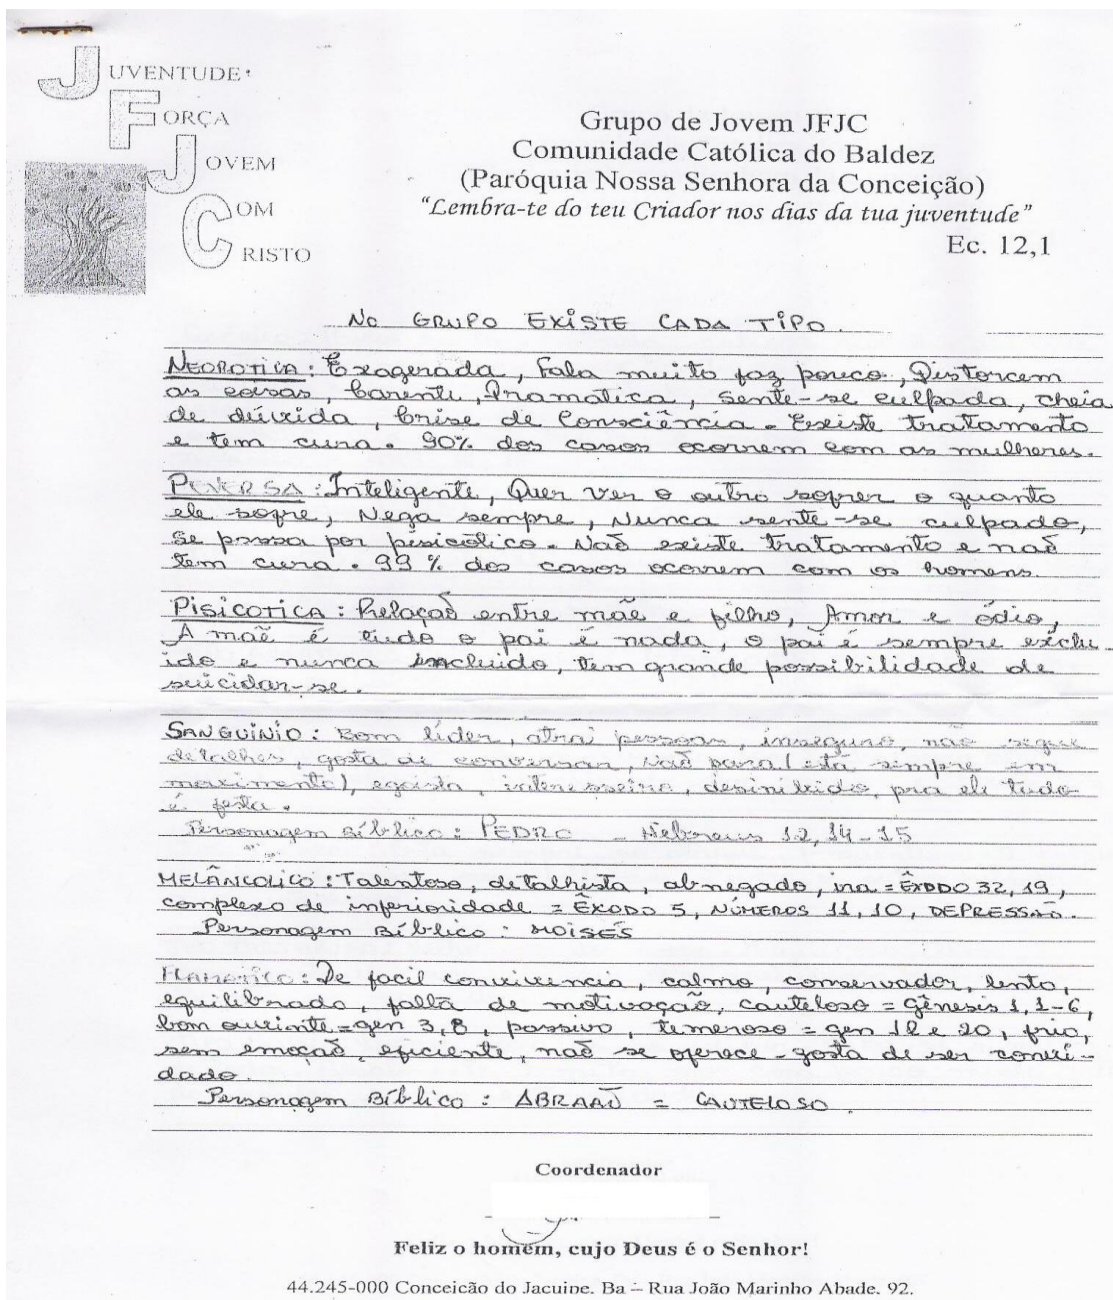 JUVENTUDE
FORÇA
JOVEM
COM
CRISTO
Grupo de Jovem JFJC
Comunidade Católica do Baldez
(Paróquia Nossa Senhora da Conceição)
“Lembra-te do teu Criador nos dias da tua juventude”
Ec. 12,1
NO GRUPO EXISTE CADA TIPO.
NEOROTICA: Exagerada, Fala muito faz pouco, Distorcem
as coisas, Carente, Dramática, sente-se culpada, cheia
de dúvida, Crise de Consciência. Existe tratamento
e tem cura. 90% dos casos ocorrem com as mulheres.
PEVERSA: Inteligente, Quer ver o outro sofrer o quanto
ele sofre, Nega sempre, Nunca sente-se culpado,
se passa por pisicólico. Naõ existe tratamento e naõ
tem cura. 99% dos casos ocorrem com os homens.
PISICOTICA: Relaçaõ entre mãe e filho, Amor e ódio,
A mãe é tudo o pai é nada, o pai é sempre exclu-
ido e nunca incluido, tem grande possibilidade de
suicidar-se.
SANGUINIO: Bom líder, atrai pessoas, inseguro, naõ segue
detalhes, gosta de conversar, Naõ para (está sempre em
movimento), egoista, interesseiro, desinibido, pra ele tudo
é festa.
Personagem Bíblico: PEDRO - Hebreus 12,14-15
MELÂNCOLICO: Talentoso, detalhista, abnegado, ira = ÊXODO 32,19,
complexo de inferioridade = ÊXODO 5, NÚMEROS 11,10, DEPRESSAÕ.
Personagem Bíblico: MOISÉS
De facil convivencia, calmo, conservador, lento,
equilibrado, falta de motivaçaõ, cauteloso = gênesis 1,1-6,
bom ouvinte = gen 3,8, passivo, temeroso = gen 12 e 20, frio,
sem emoçaõ, eficiente, naõ se oferece - gosta de ser convi-
dado.
Personagem Bíblico: ABRAAÕ = CAUTELOSO.
Coordenador
Feliz o homem, cujo Deus é o Senhor!
44.245-000 Conceição do Jacuipe. Ba – Rua João Marinho Abade. 92.